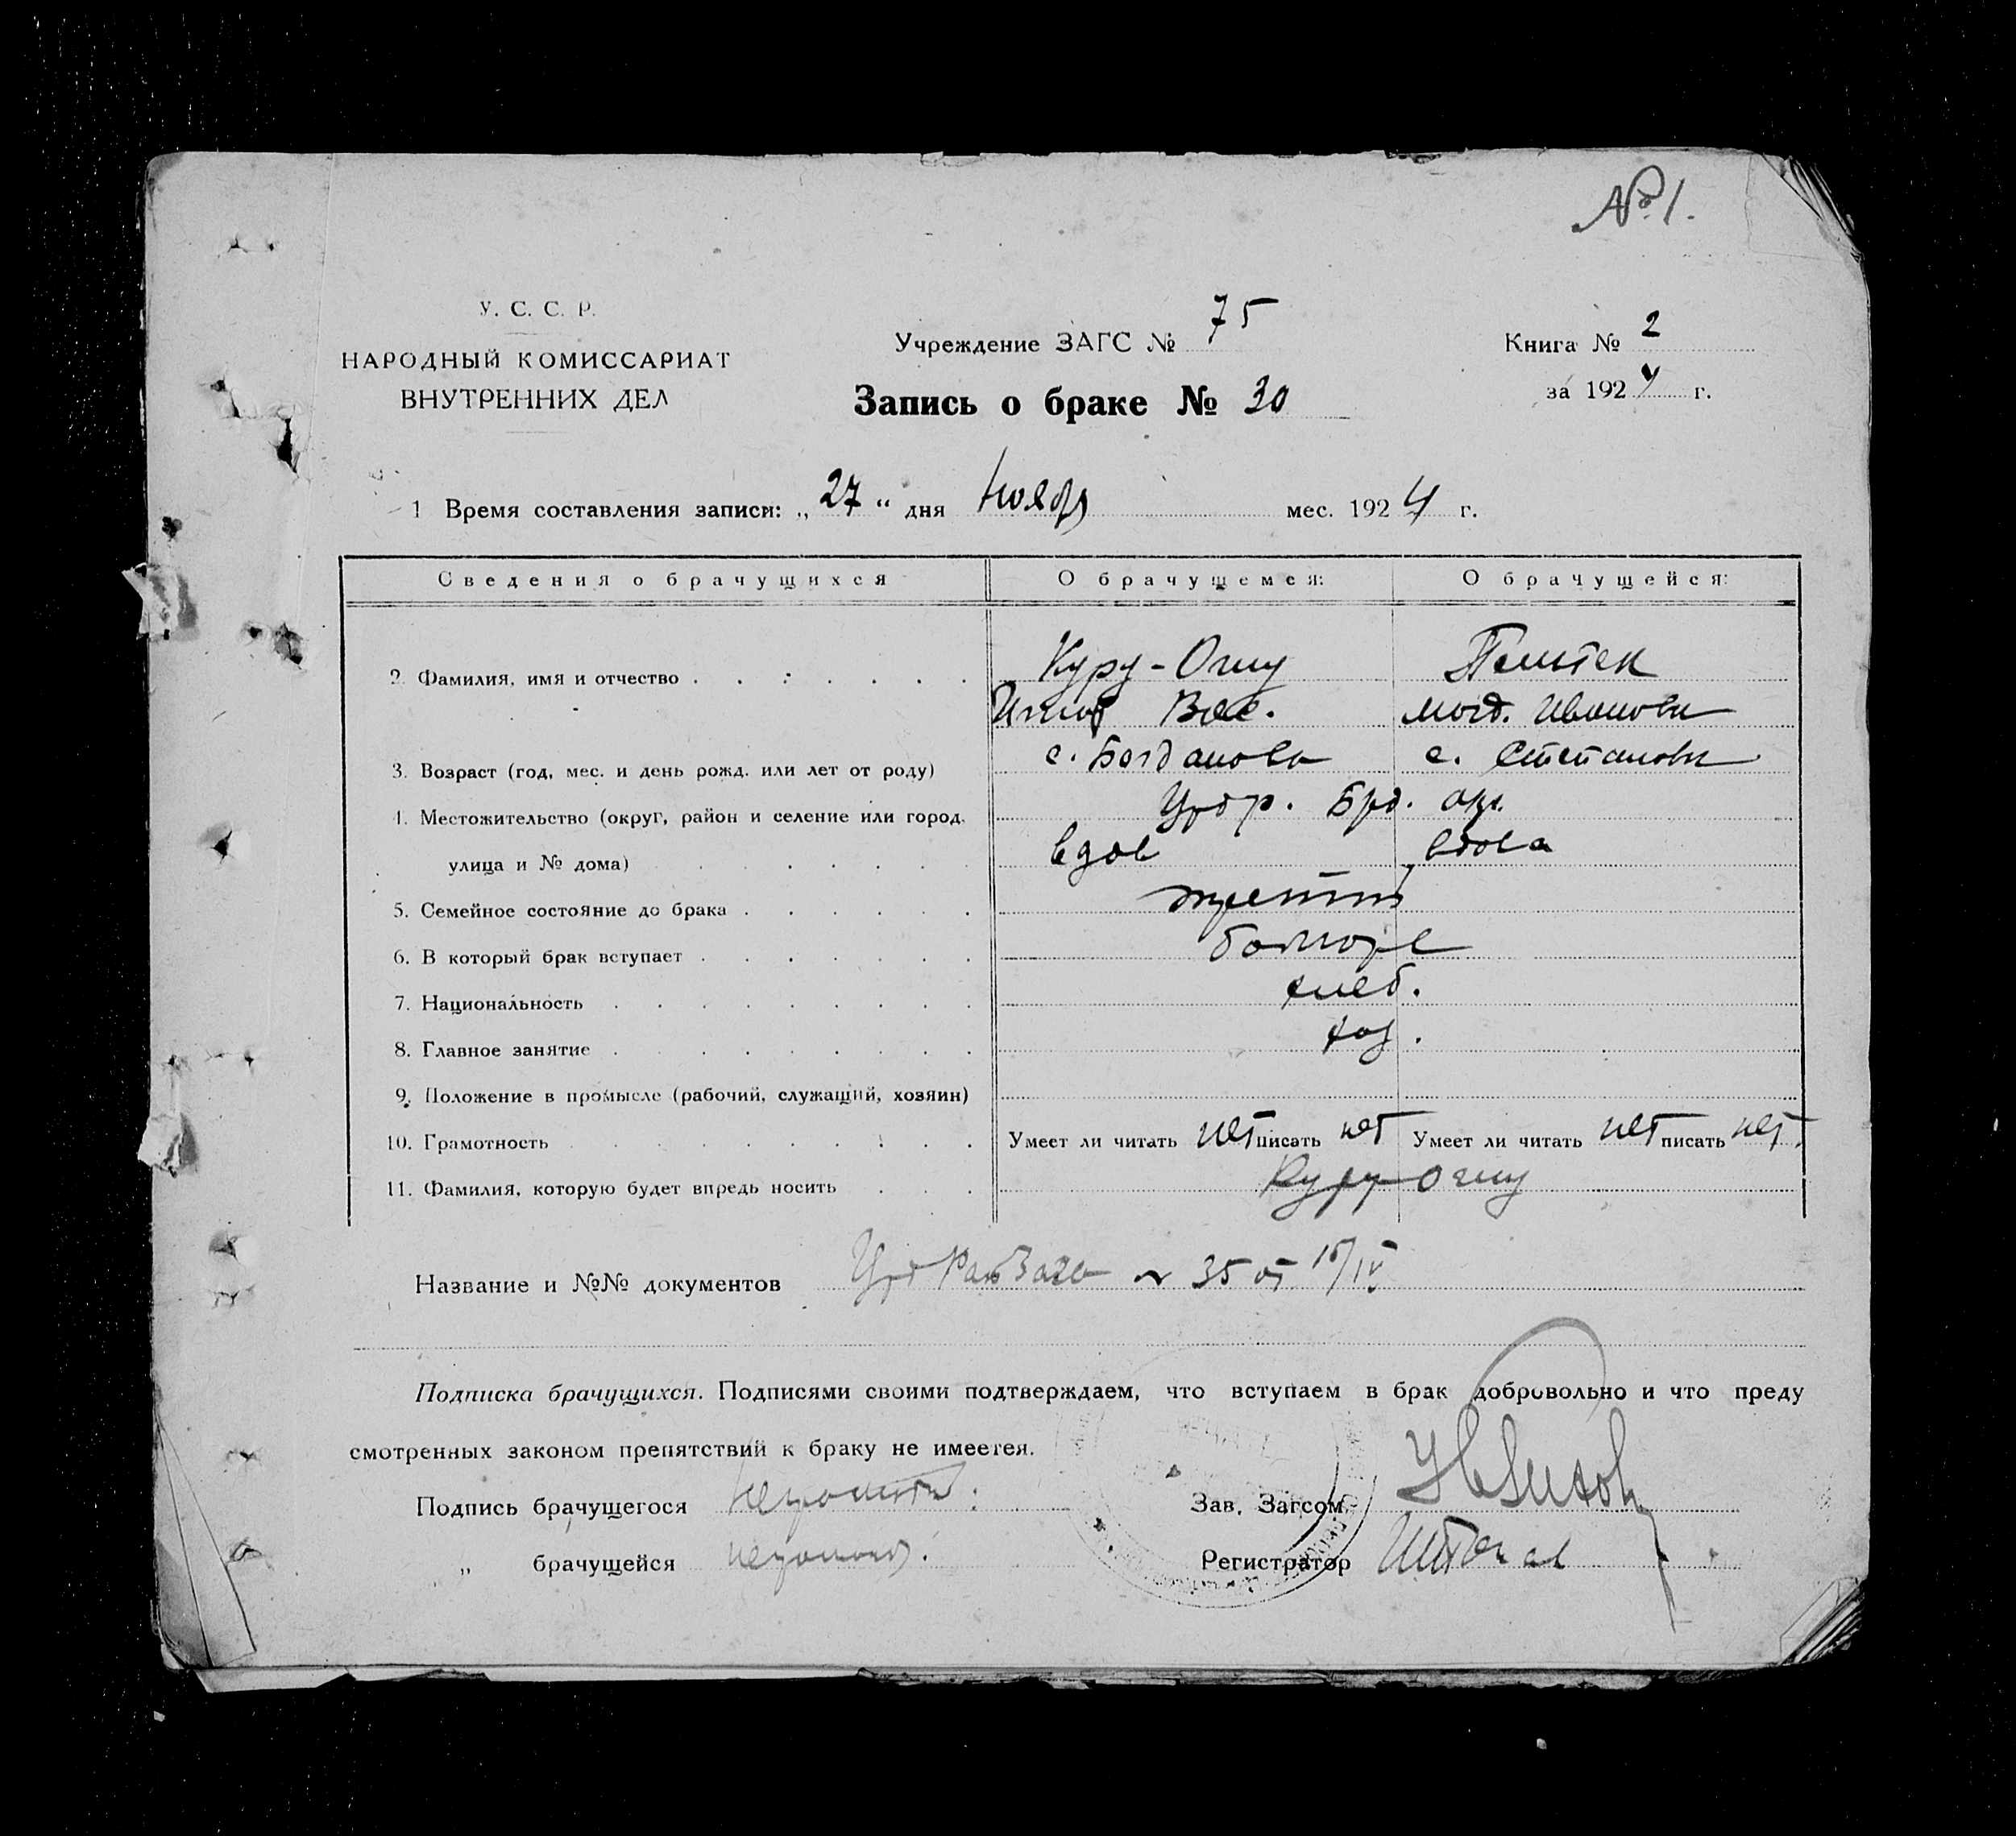 № 1.
У. С. С. Р.
НАРОДНЫЙ КОМИССАРИАТ
ВНУТРЕННИХ ДЕЛ
Учреждение ЗАГС № 75
Запись о браке № 30
Книга № 2
за 1924 г.
1 Время составления записи: „27“ дня Ноябр мес. 1924 г.
Сведения о брачущихся О брачущемся: О брачущейся:
2. Фамилия, имя и отчество Куру-Оглу
Вас. Ивановн
3. Возраст (год, мес. и день рожд. или лет от роду) с. Богдановк с. Степановк
4. Местожительство (округ, район и селение или город, Брд. окр.
улица и № дома) вдов вдова
5. Семейное состояние до брака третий
6. В который брак вступает болгоре
7. Национальность хлеб.
8. Главное занятие хоз.
9. Положение в промысле (рабочий, служащий, хозяин)
10. Грамотность Умеет ли читать нет писать нет Умеет ли читать нет писать нет.
11. Фамилия, которую будет впредь носить Куру-Оглу
Название и №№ документов 35 от 15/IV
Подписка брачущихся. Подписями своими подтверждаем, что вступаем в брак добровольно и что преду
смотренных законом препятствий к браку не имеется.
Подпись брачущегося Зав. Загсом
„ брачущейся Регистратор